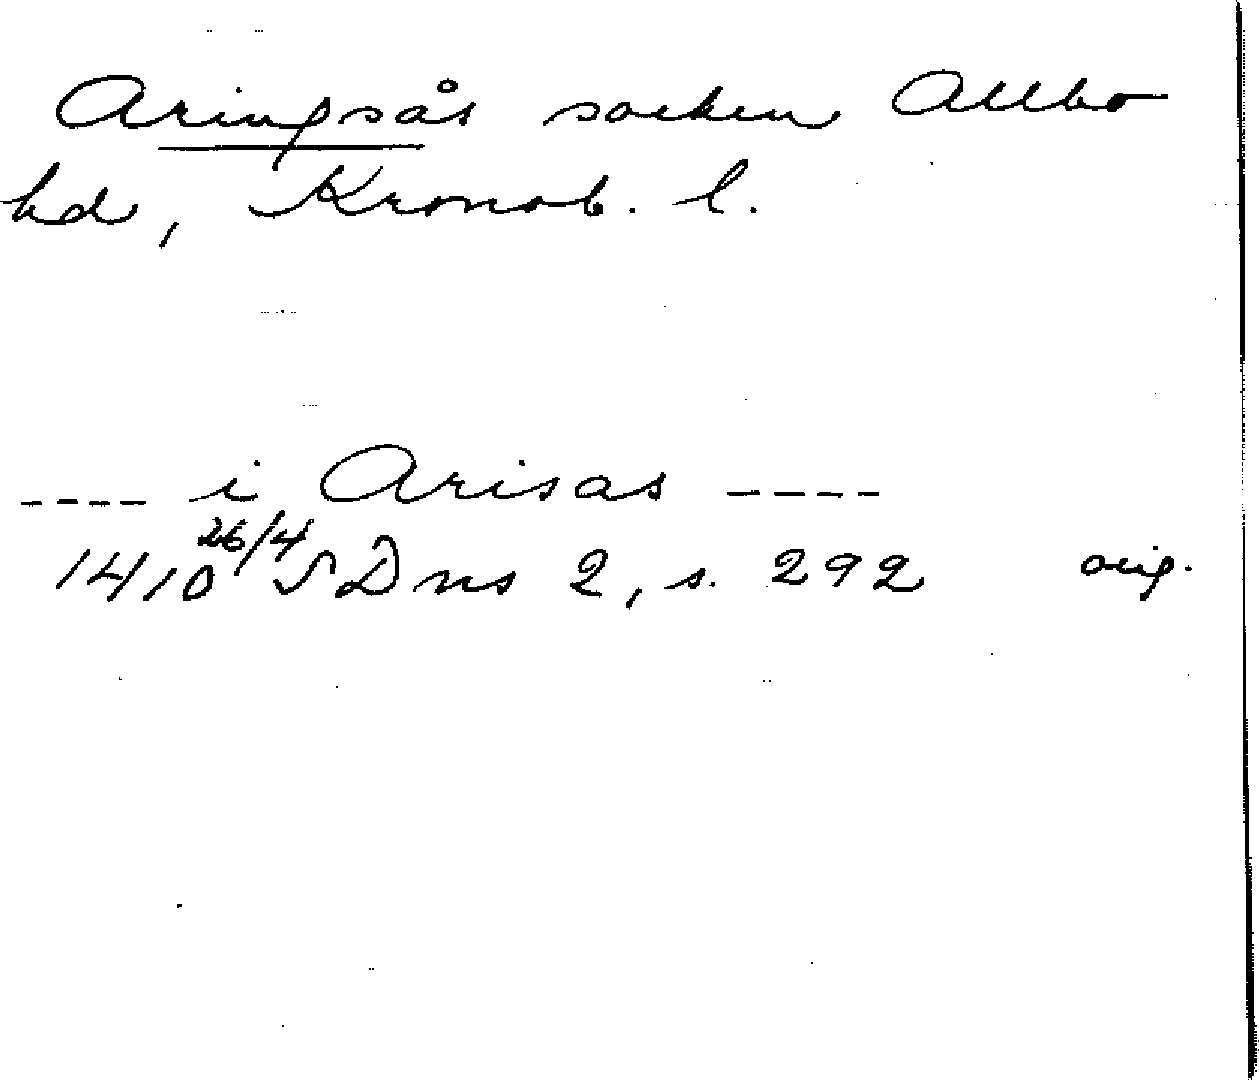 Aringsås socken Allbo
hd, Kronob. l.
---- i Arisas ----
1410 26/4 SDns 2, s. 292 orig.